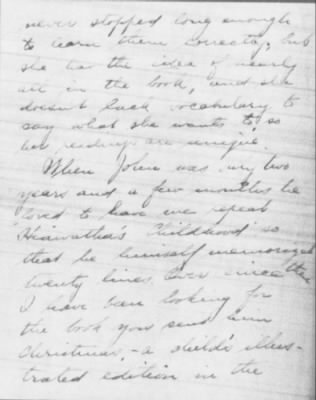 never stopped long enough
to learn them correctly, but
she has the idea of nearly
all in the book, and she
doesn't lack vocabulary to
say what she wants to, so
her readings are unique.
When John was only two
years and a few months he
loved to have me repeat
"Hiawatha's Childhood" so
that he himself memorized
twenty lines. Ever since then
I have been looking for
the book you send him
Christmas, - a child's illus-
trated edition in the